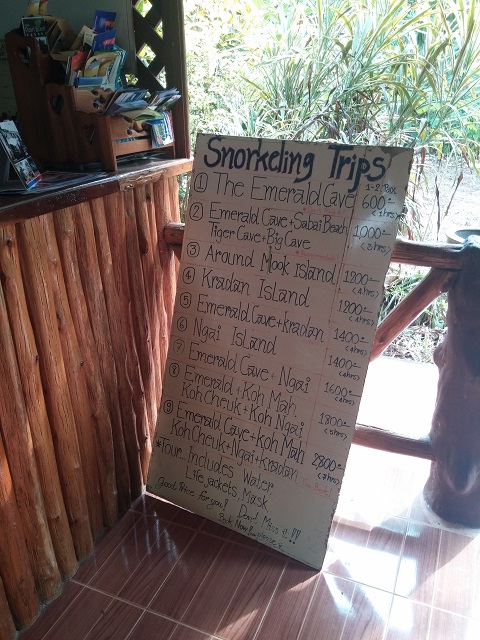 Snorkeling Trips
1-2
① The Emerald Cave 600.-
② Emerald Cave + Sabai Beach 1,000.-
Tiger Cave + Big Cave
③ Around Mook Island 1200.-
④ Kradan Island 1200.-
⑤ Emerald Cave + Kradan 1400.-
⑥ Ngai Island 1400.-
⑦ Emerald Cave + Ngai 1600.-
⑧ Emerald + Koh Mah 1800.-
Koh Cheuk + Koh Ngai
⑨ Emerald Cave + Koh Mah 2,800.-
Koh Cheuk + Ngai + Kradan
*Tour Includes Water
Life jackets Mask
Good Price for you! Don't Miss it!!!
Book Now!